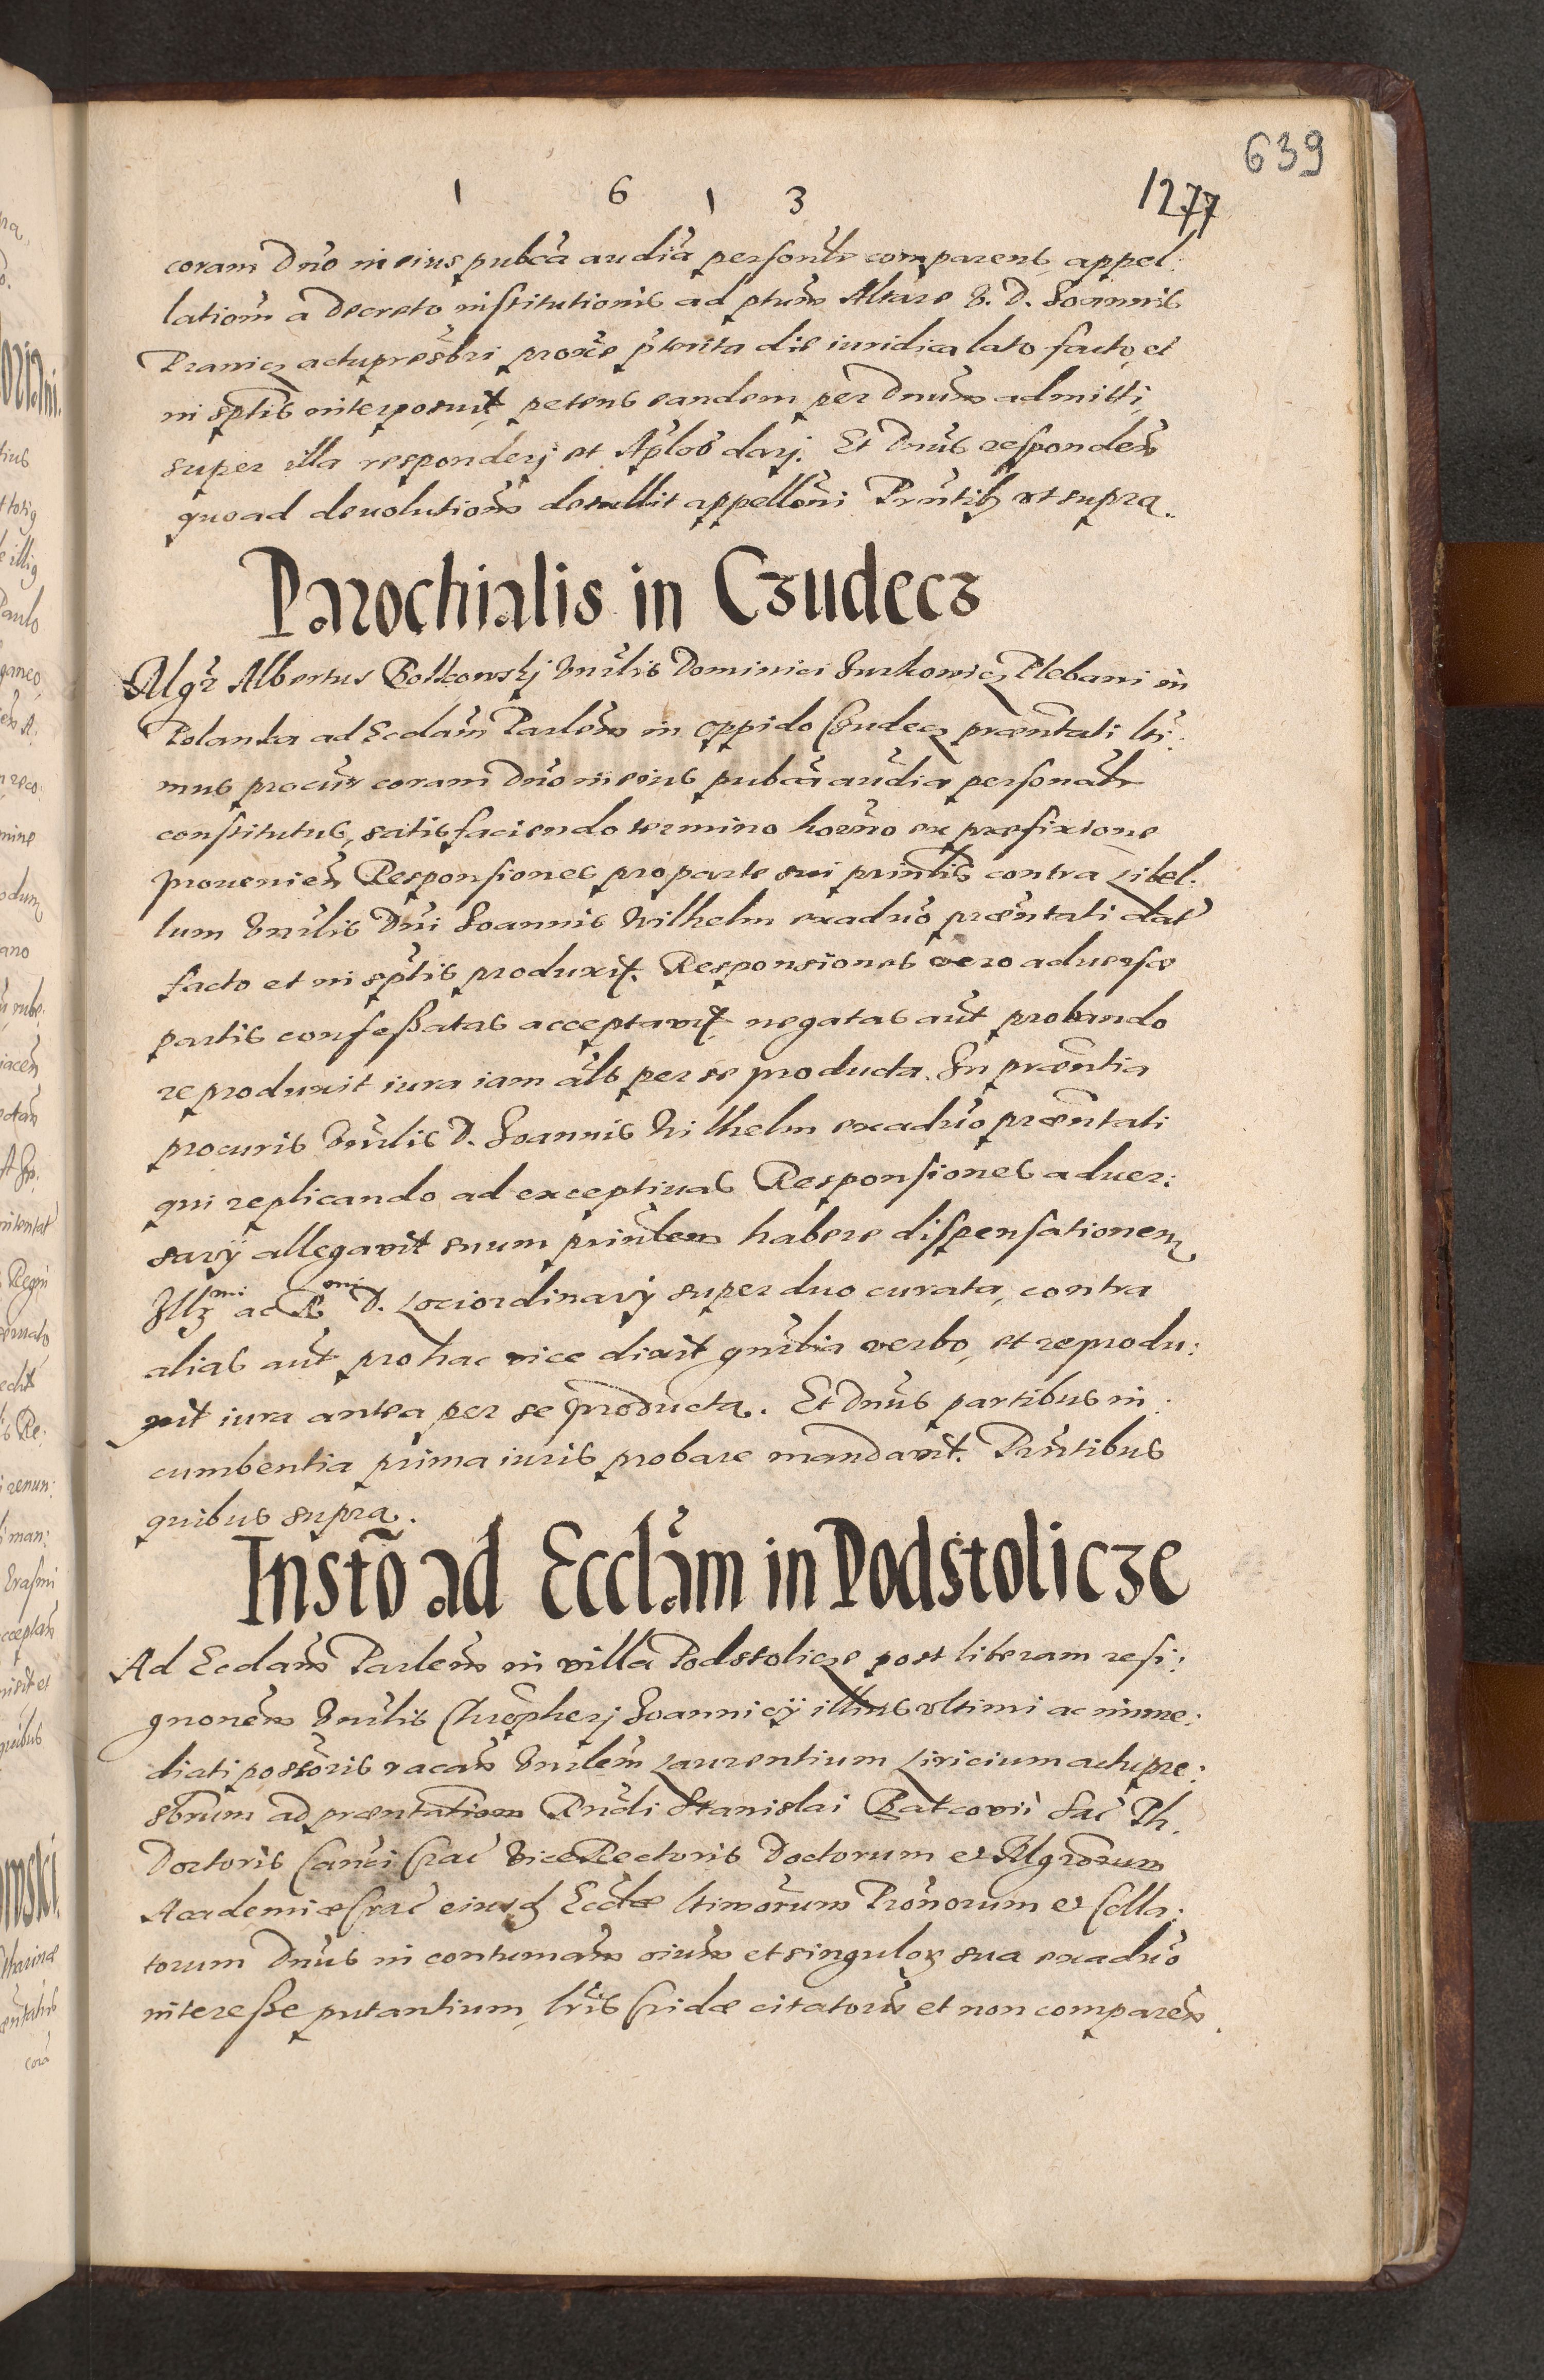 639
1 6 1 3
1277
coram Dno in eius pubca audia personlr comparens appel:
lationem a Decreto institutionis ad ptum Altare V. D. Joannis
actupresbri proxe pterita die iuridica lato facto, et
in sptis interposuit, petens eandem per Dnum admitti,
super illa responderj et Aplos darj. Et Dnus responden
quoad deuolutionem detullit appelloni Prntibus ut supra.
Parochialis in Czudecz
Mgr Albertus Bolkowskj Vnrlis Dominici Surkowicz Plebani in
Polanka ad Ecclam Parlem in oppido Czudecz praentati ltti:
mus procur coram Dno in eius pubca audia personalr
constitutus, satisfaciendo termino horno ex praefixione
prouenien Responsiones pro parte sui prinlis contra Libel:
lum Vnrlis Dni Joannis Wilhelm ex aduo praentati dat
facto et in sptis produxit. Responsiones vero aduersae
partis confessatas acceptavit, negatas aut probando
reproduxit iura iam als per se producta. In praentia
procuris Vnrlis D. Joannis Wilhelm ex aduo praentati
qui replicando ad exceptiuas Responsiones aduer:
sarij allegavit suum prinlem habere dispensationem
Illmi ac Rmi D. Lociordinarij super duo curata, contra
alias aut pro hac vice dixit gnrlia verbo, et reprodu:
xit iura antea per se producta. Et Dnus partibus in:
cumbentia prima iuris probare mandavit. Prntibus
quibus supra.
Instō ad Ecclam in Podstolicze
Ad Ecclam Parlem in villa Podstolicze post liberam resi:
gnonem Vnrlis Chropherj Joannicij illius vltimi ac imme:
diati possoris vacan Vnrlem Laurentium Liricium actupre:
sbrum ad praentationem Rndi Stanislai Ratcovii Sac Th.
Doctoris Canci Crac ViceRectoris Doctorum et Mgrorum
Academiae Crac eiusd Ecclae ltimorum Pronorum et Colla:
torum Dnus in contumam oium et singulor sua ex aduo
interesse putantium, lris Cridae citatorum et non comparen.